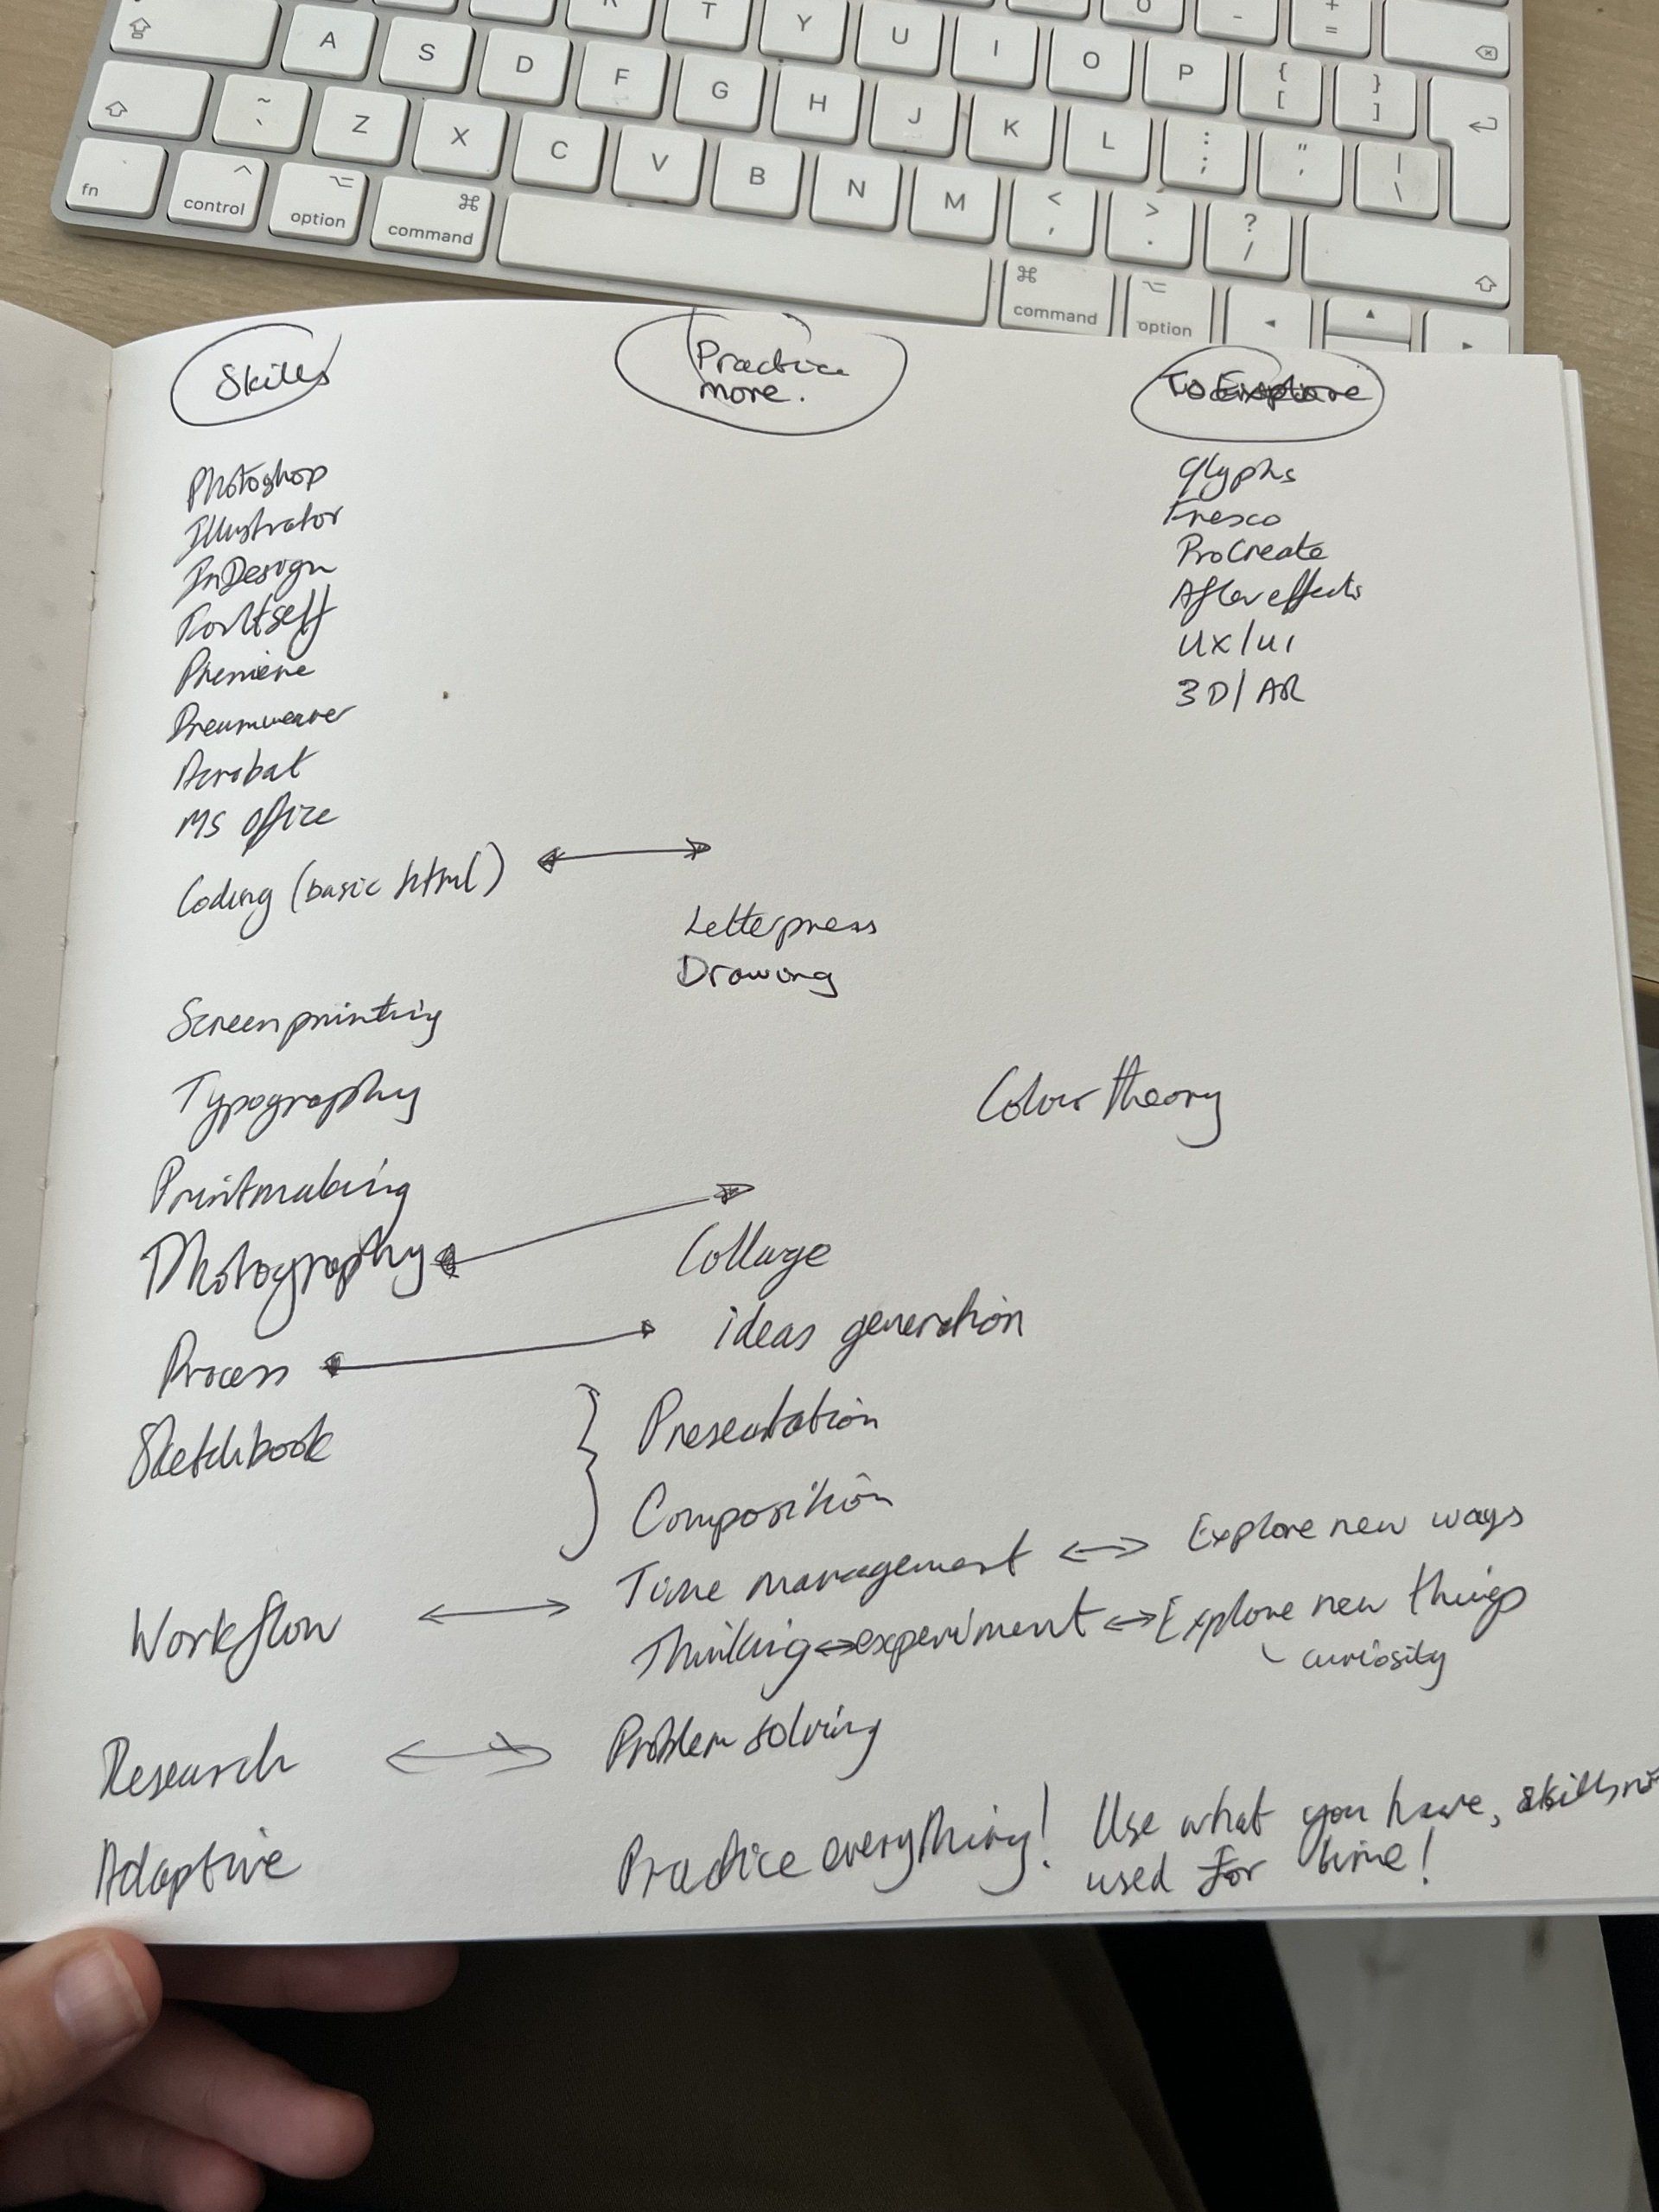 T Y U I O P { [ } ]
A S D F G H J K L : ; " ' | \
~ ` Z X C V B N M < , > . ? /
fn control option command command option
Skills
Practice
more.
To Explore
Photoshop
Illustrator
InDesign
Fontself
Premiere
Dreamweaver
Acrobat
MS Office
Coding (basic html)
Screenprinting
Typography
Printmaking
Photography
Process
Sketchbook
Workflow
Research
Adaptive
Letterpress
Drawing
Collage
ideas generation
Presentation
Composition
Time management
Thinking ↔ experiment
Problem solving
Practice everything!
Glyphs
Fresco
ProCreate
After effects
UX/UI
3D/AR
Colour theory
Explore new ways
Explore new things
curiosity
Use what you have, skills
used for time!